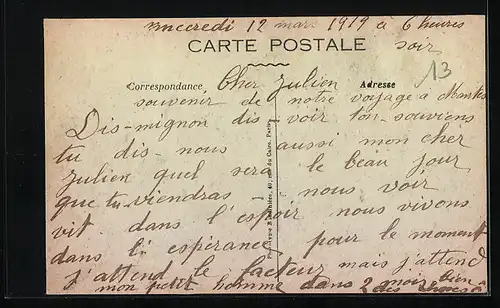 Mercredi 12 mars 1919 a 6 heures
soir
CARTE POSTALE
13
Correspondance
Adresse
Cher Julien
souvenir de notre voyage a Mantes
Dis-mignon dis voir ton-souviens
tu dis-nous aussi mon cher
Julien quel sera le beau jour
que tu viendras - nous voir
vit. dans l'espoir nous vivons
dans l'espérance pour le moment
j'attend le facteur mais j'attend
mon petit homme dans 2 mois bien
des choses